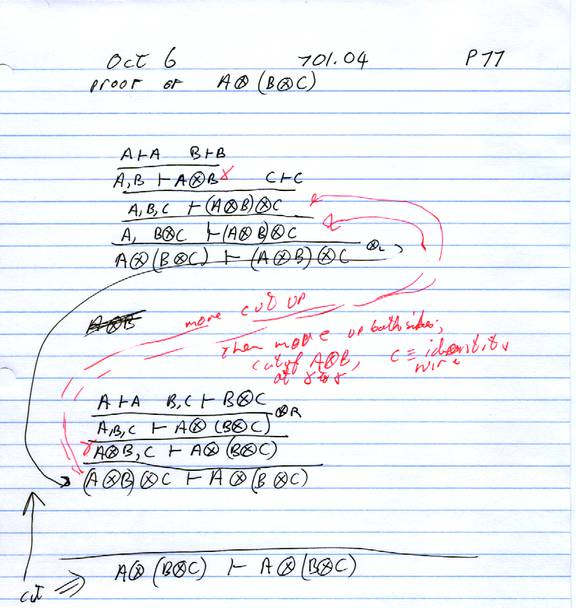 Oct 6 701.04 P77
Proof of A⊗(B⊗C)
A⊢A B⊢B
A,B ⊢ A⊗B C⊢C
A,B,C ⊢ (A⊗B)⊗C
A, B⊗C ⊢ (A⊗B)⊗C
A⊗(B⊗C) ⊢ (A⊗B)⊗C ⊗L
A⊗B
move cut up
then move up both sides,
cut of A⊗B, C = identity
at wire
A⊢A B,C ⊢ B⊗C
A,B,C ⊢ A⊗(B⊗C) ⊗R
A⊗B,C ⊢ A⊗(B⊗C)
(A⊗B)⊗C ⊢ A⊗(B⊗C)
A⊗(B⊗C) ⊢ A⊗(B⊗C)
cut ⇒